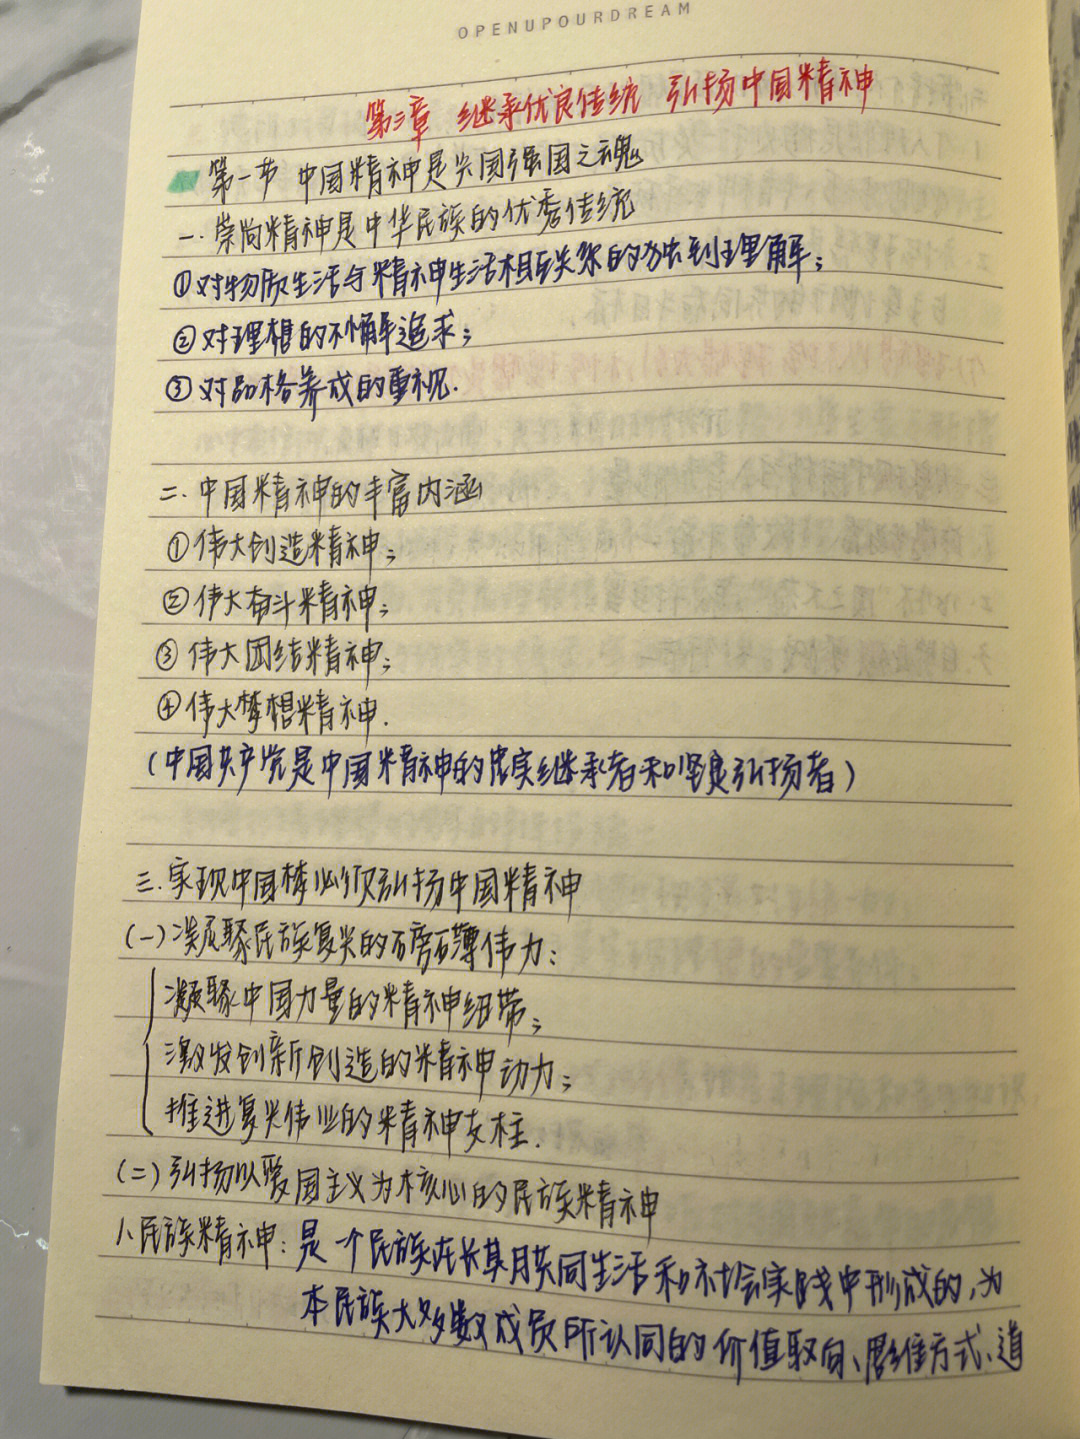 OPENUPOURDREAM
第三章 继承优良传统 弘扬中国精神
第一节 中国精神是兴国强国之魂
一.崇尚精神是中华民族的优秀传统
①对物质生活与精神生活相互关系的独到理解;
②对理想的不懈追求;
③对品格养成的重视.
二.中国精神的丰富内涵
①伟大创造精神;
②伟大奋斗精神;
③伟大团结精神;
④伟大梦想精神.
(中国共产党是中国精神的忠实继承者和坚定弘扬者)
三.实现中国梦必须弘扬中国精神
(一)凝聚民族复兴的磅礴伟力:
凝聚中国力量的精神纽带;
激发创新创造的精神动力;
推进复兴伟业的精神支柱.
(二)弘扬以爱国主义为核心的民族精神
1.民族精神:是一个民族在长期共同生活和社会实践中形成的,为
本民族大多数成员所认同的价值取向、思维方式、道